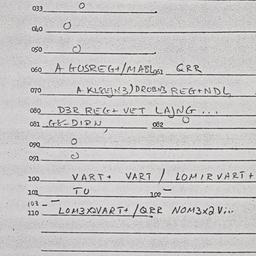 033 0
040 0
050 0
060 A GUSREG+/MABL061 QRR
070 DROBN3 REG+NDL
080 D3R REG+ VET LAJNG ...
081 082
090 0
091 0
100 VART+ VART / LOMIRVART+
101 TU 100 -
103 -
110 LOM3XQVART+/QRR NOM3X2V...